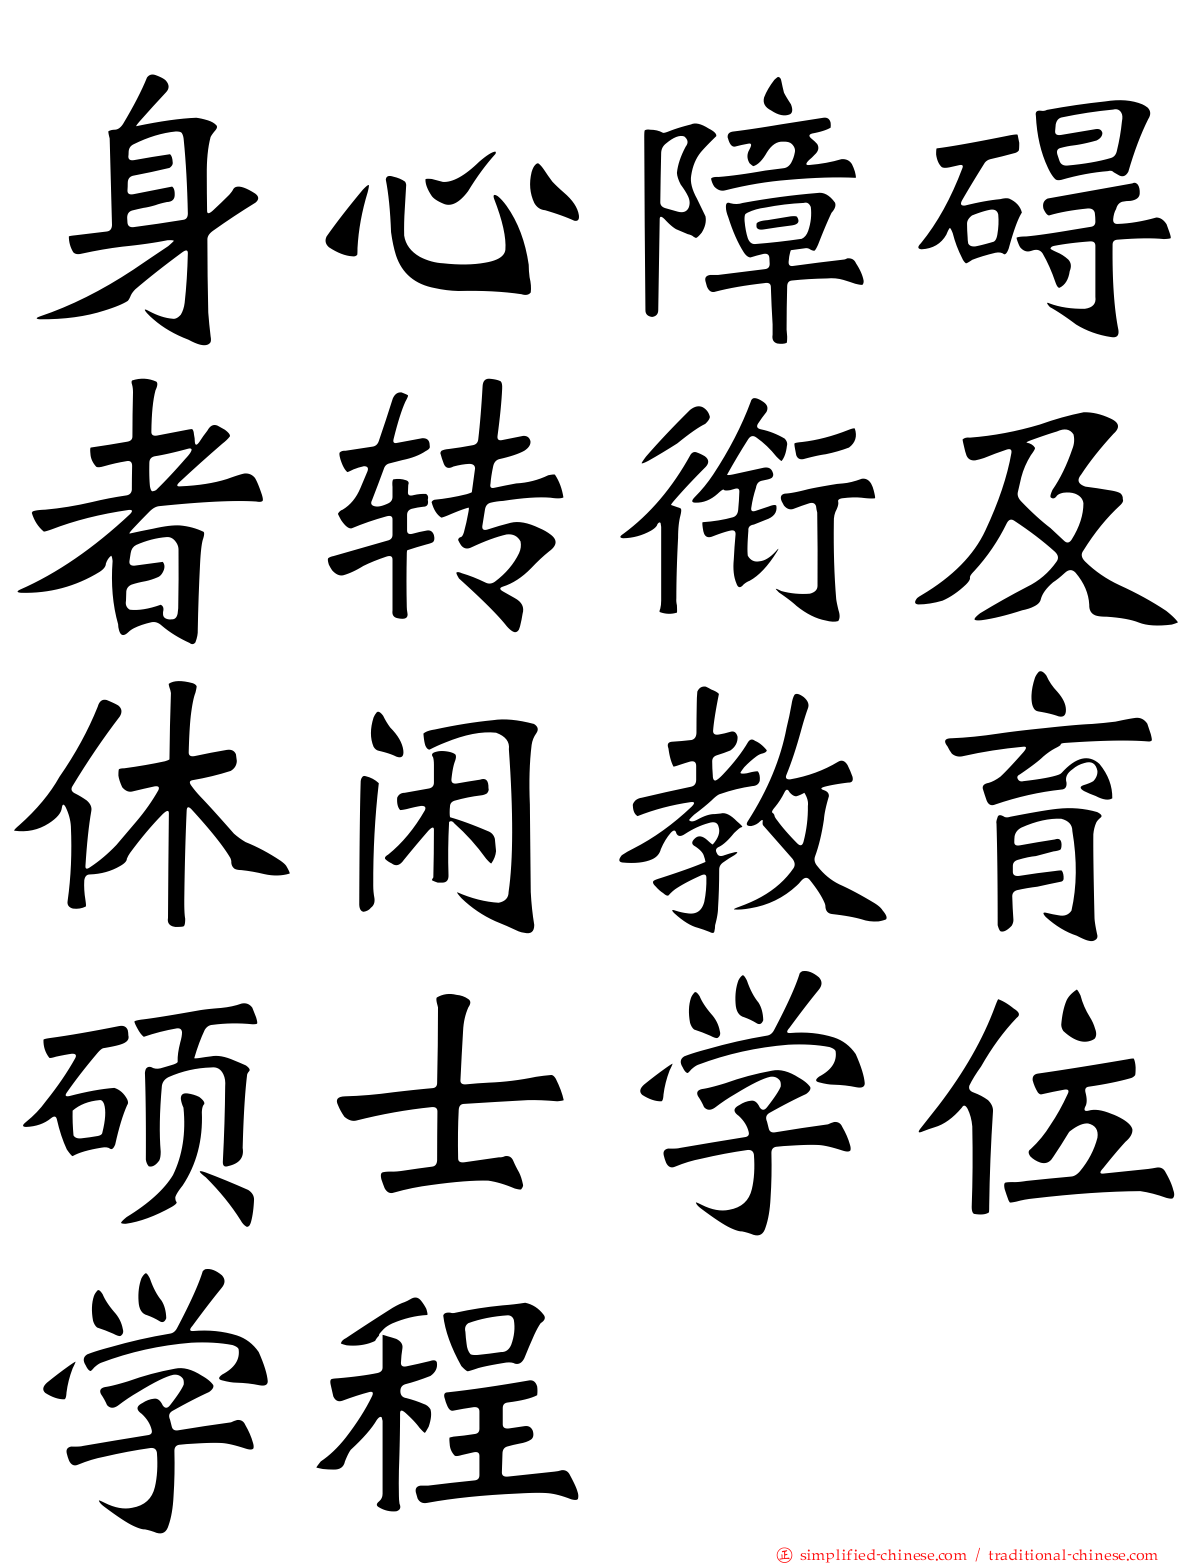 身心障碍
者转衔及
休闲教育
硕士学位
学程
正 simplified-chinese.com / traditional-chinese.com